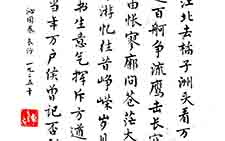 江北去橘子洲头看万
百舸争流鹰击长空
由怅寥廓问苍茫大
游忆往昔峥嵘岁月
书生意气挥斥方遒
当年万户侯曾记否
沁园春长沙
一九二五年